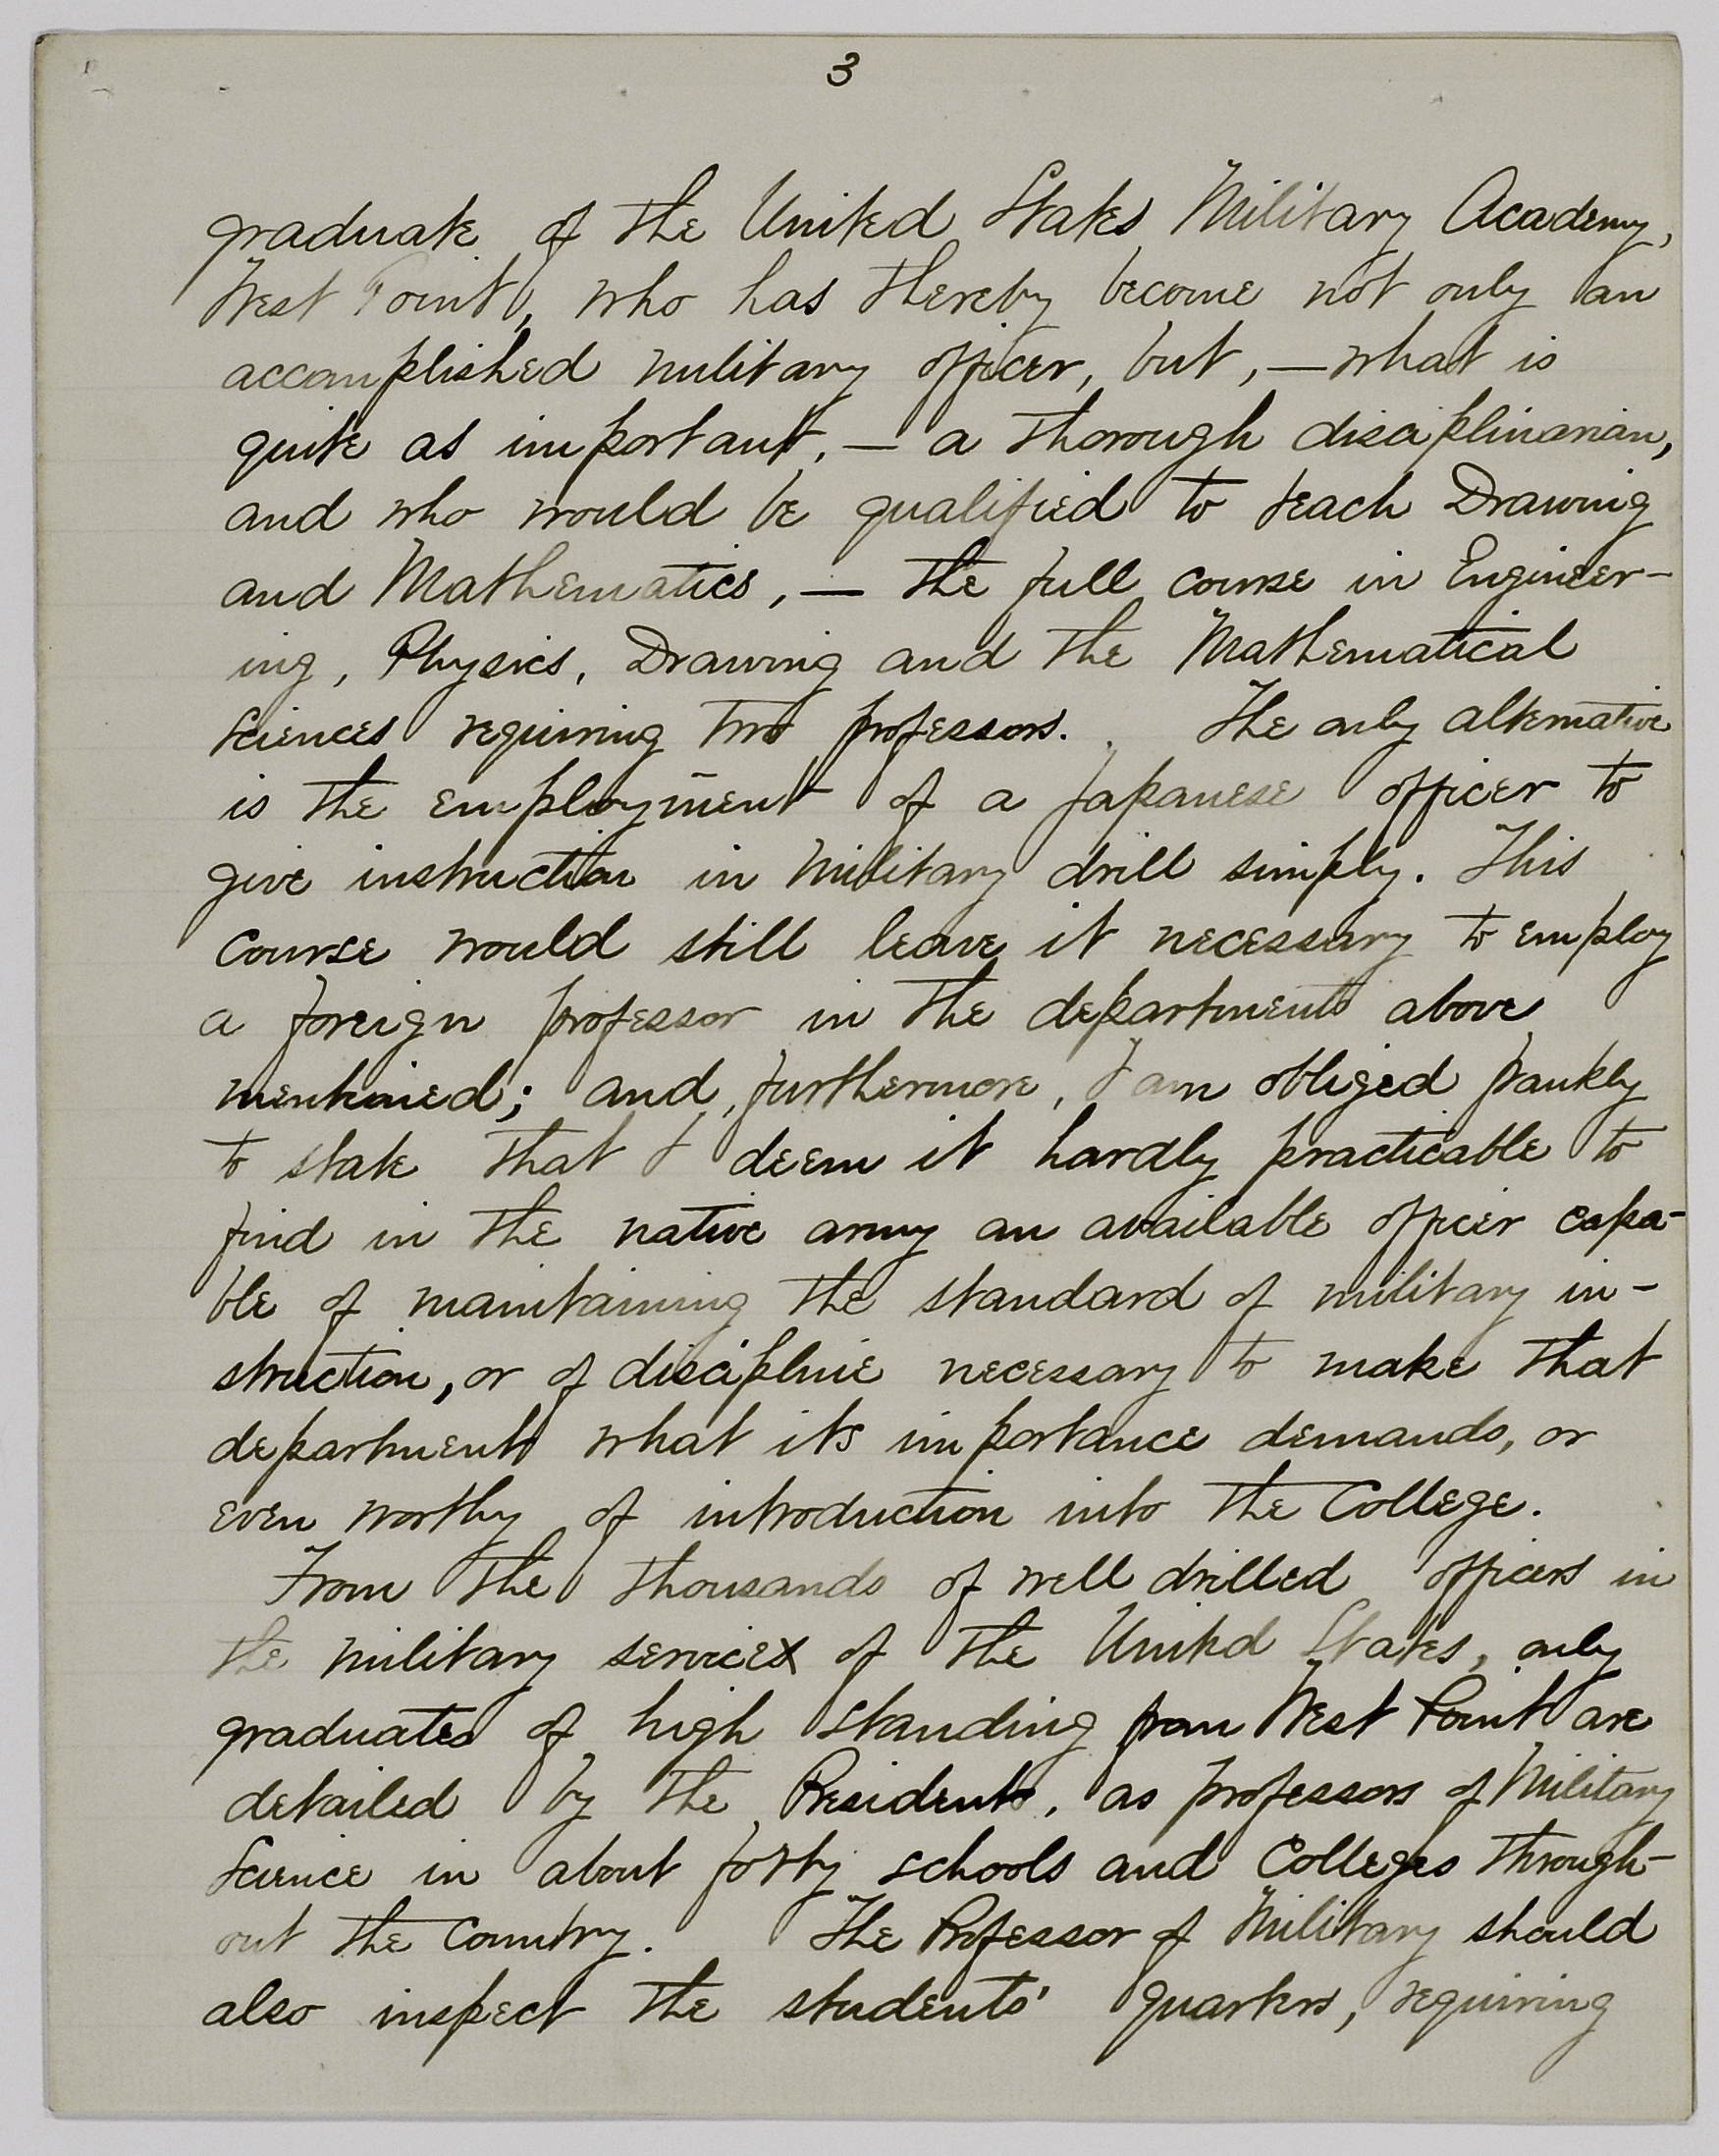 3
graduate of the United States Military Academy,
West Point, who has thereby become not only an
accomplished military officer, but, — what is
quite as important, — a thorough disciplinarian,
and who would be qualified to teach Drawing
and Mathematics, — the full course in Engineer-
ing, Physics, Drawing and the Mathematical
Sciences requiring two professors. The only alternative
is the employment of a Japanese officer to
give instruction in military drill simply. This
course would still leave it necessary to employ
a foreign professor in the departments above
mentioned; and, furthermore, I am obliged frankly
to state that I deem it hardly practicable to
find in the native army an available officer capa-
ble of maintaining the standard of military in-
struction, or of discipline necessary to make that
department what its importance demands, or
even worthy of introduction into the College.
From the thousands of well drilled officers in
the military service of the United States, only
graduates of high standing from West Point are
detailed by the President, as professors of Military
Science in about forty schools and Colleges through-
out the Country. The Professor of Military should
also inspect the students' quarters, requiring